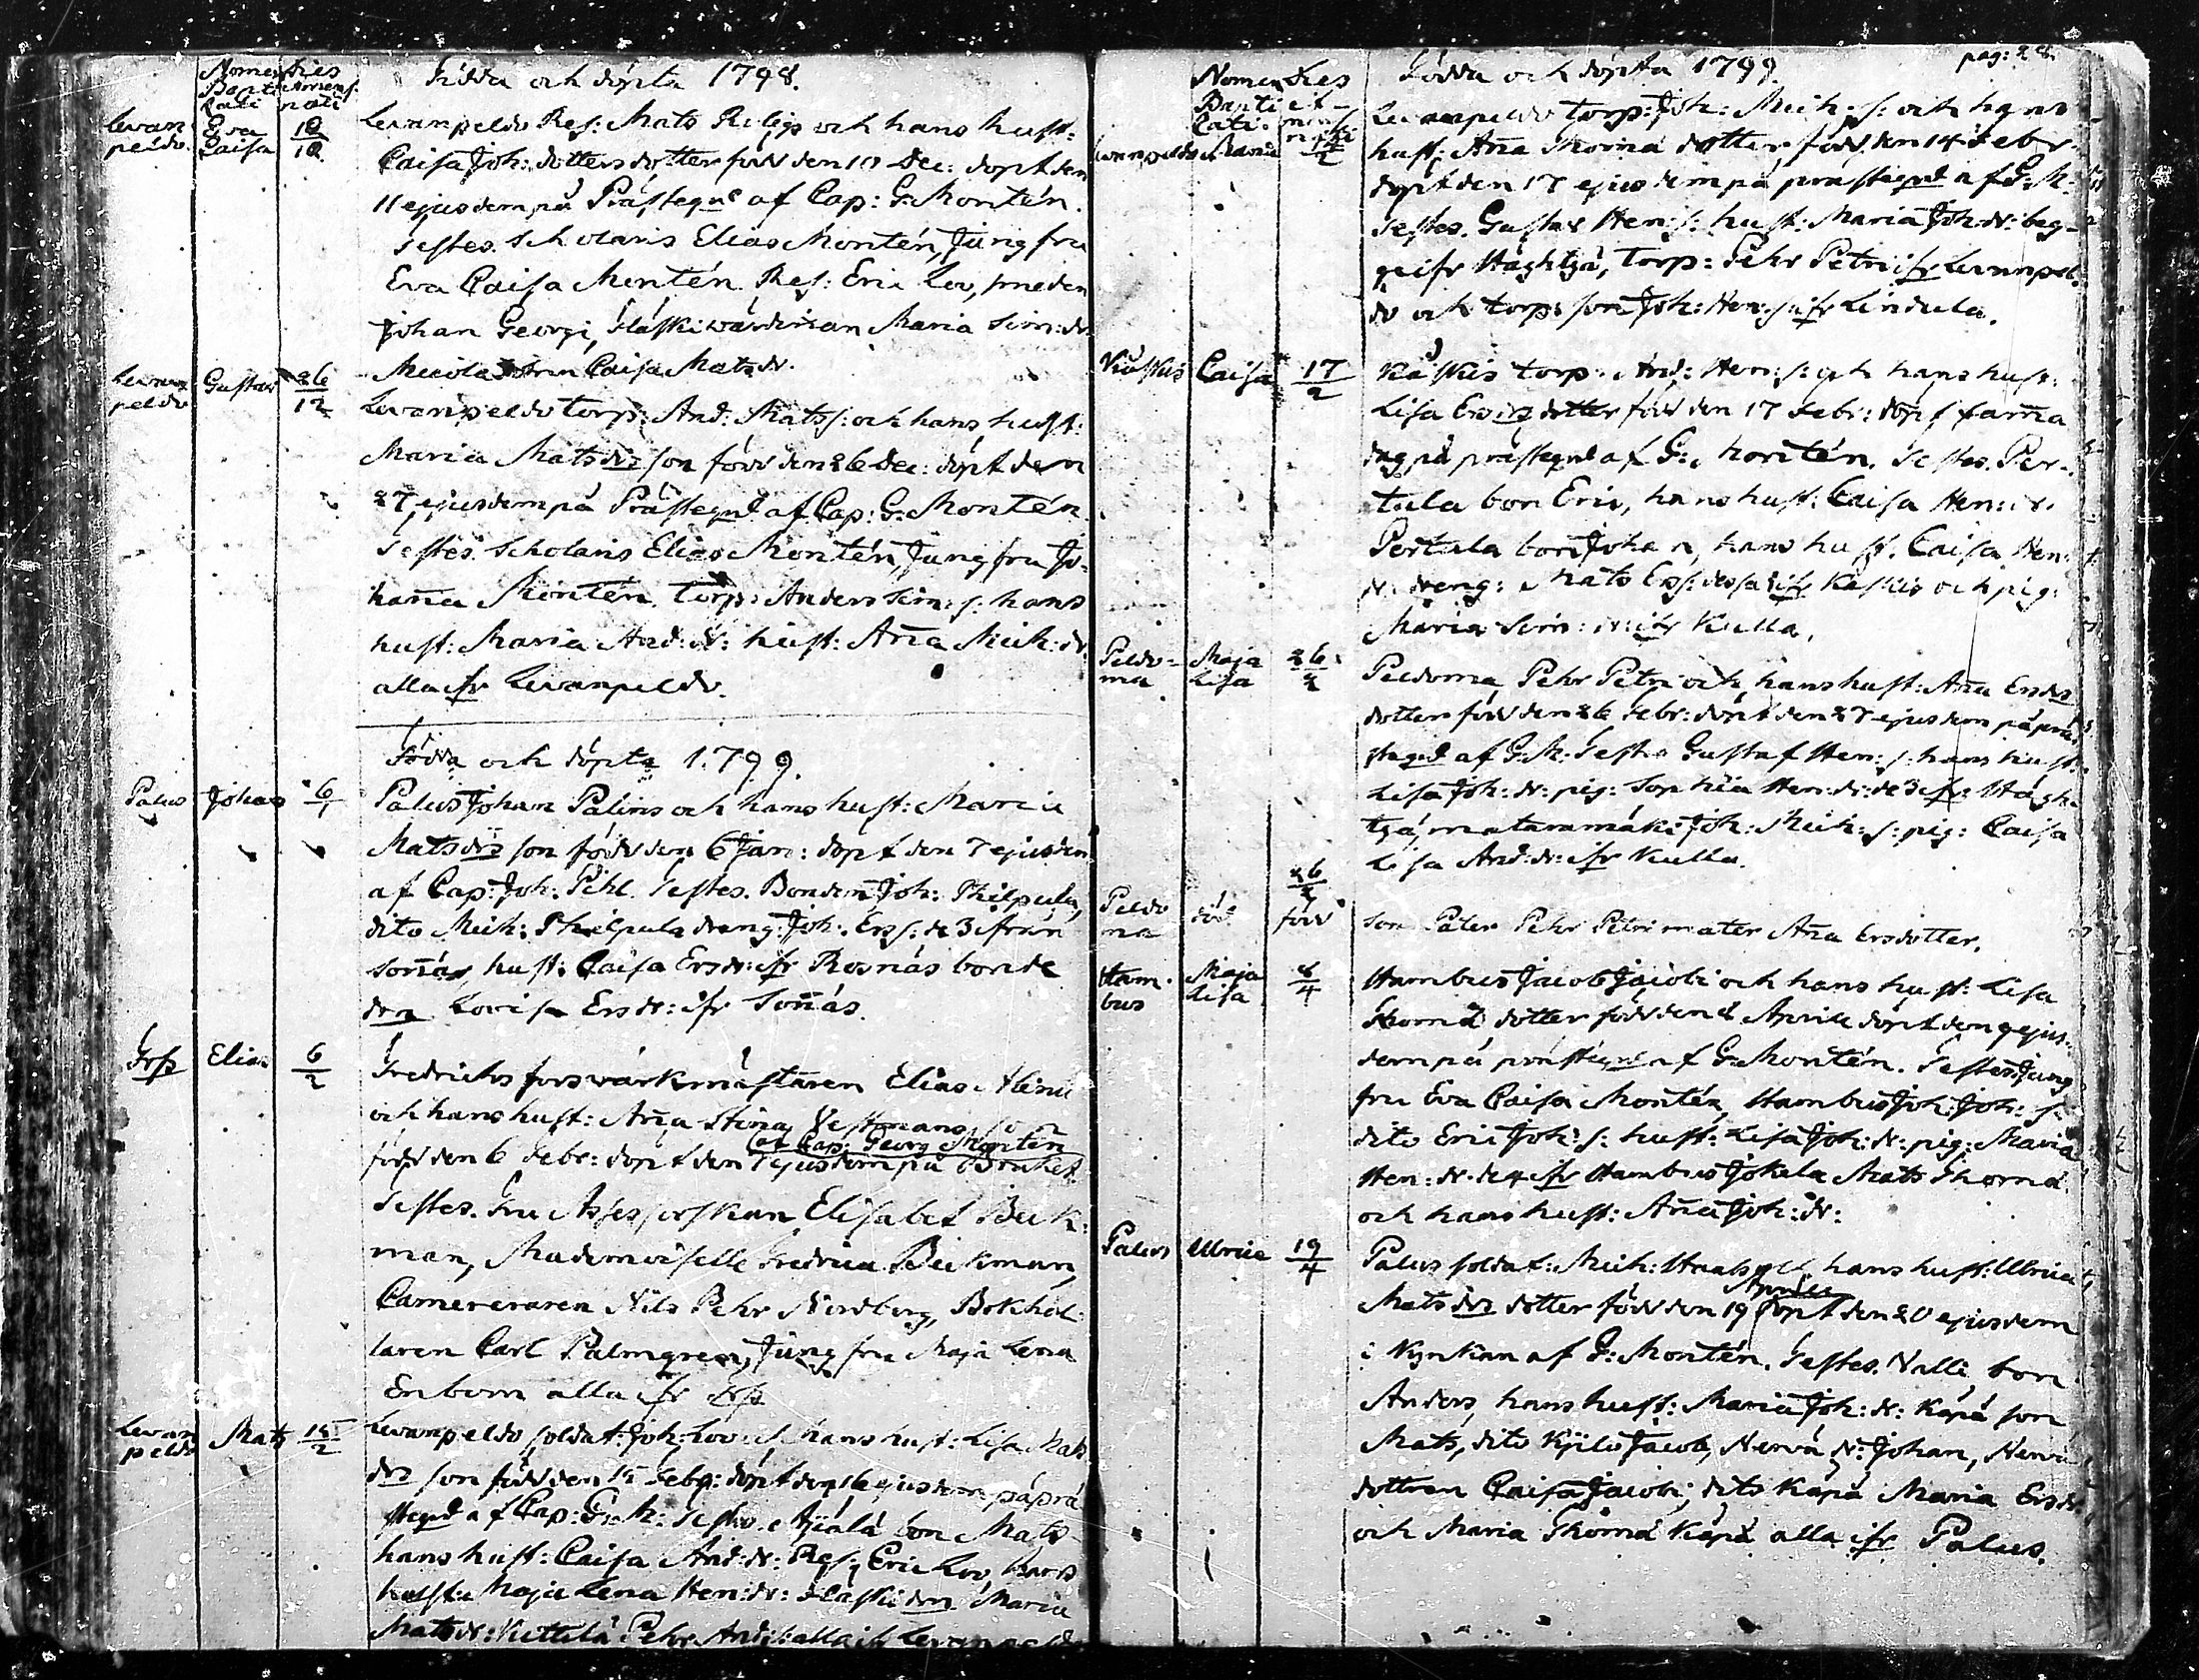 Födda och döpta 1798.
Nomen Dies
Bapti et mens.
zati nati
Levan Eva 10
peldo. Caisa 12
Levanpeldo Res: Mats Rilig och hans hust:
Caisa Joh: dotters dotter född den 10 Dec: döpt den
11 ejusdem på Prästegrd af Cap: G: Montén.
Testes. Scholaris Elias Montén, Jungfru
Eva Caisa Montén. Res: Eric Lov, smeden
Johan Georgi, Hlaski värdinnan Maria Sim: dr:
Mecola Caisa Mats dr.
Levan Gustav 26
peldo 12
Levanpeldo torp: And: Mats s: och hans hust:
Maria Mats drs son född den 26 Dec: döpt den
27 ejusdem på Prästegrd af Cap: G: Montén.
Testes. Scholaris Elias Montén, Jungfru Jo-
hanna Montén. torp: Anders Sim: s: hans
hust: Maria And: dr: hust: Aña Mich: dr
alla ifr Levanpeldo.
Födda och döpta 1799.
Palus Johan 6
1
Palus Johan Palins och hans hust: Maria
Mats drs son född den 6 Jan: döpt den 7 ejusdem
af Cap: Joh: Pihl. Testes. Bonden Joh: Philpula,
dito Mich: Philpula dreng: Joh: Ers s: de 3 från
Soñäs, hust: Caisa Ers dr: ifr Rosnäs bonde
drn Lovisa Ers dr: ifr Soñäs.
Frfs Elias 6
2
Fredrichsforswärkmästaren Elias Alenius
och hans hust: Aña Stina Vestmans son
af Cap: Georg Montén
född den 6 Febr: döpt den 7 ejusdem på Bruket
Testes. Fru Assessorskan Elisabet Bäck-
man, Mademoiselle Fredrica Beckman,
Camereraren Nils Pehr Nordberg, Bokhol-
laren Carl Palmgren, Jungfru Maja Lena
Enbom alla ifr Frfs
Levan Mats 15
peldo 2
Levanpeldo soldat: Joh: Lov och hans hust: Lisa Mats
drs son född den 15 Febr: döpt den 16 ejusdem på prä
stegrd af Cap: G: M: Testes. Äjälä bon Mats
hans hust: Caisa And: dr: Res: Eric Lov, hans
hust: Maja Lena Hen: dr: Hlaski drn Maria
Mats dr: Kettelä Pehr And: s: alla ifr Levanpeldo
pag: 28.
Födda och döpta 1799.
Nomen Dies
Bapti et
zati. mens
nati
Levanpeldo Maria 14
2
Levanpeldo torp: Joh: Mich: s: och hans
hust: Aña Thomä dotter, född den 14 Febr:
döpt den 17 ejusdem på prästegrd af G: M:
Testes. Gustav Hen: s: hust: Maria Joh: dr: beg-
ge ifr Haghtjä, torp: Pehr Petri ifr Levanpel-
do och torp: son Joh: Hen: s: ifr Lindula.
Käskis Caisa 17
2
Käskis torp. And: Hen: s: och hans hust:
Lisa Ers drs dotter född den 17 Febr: döpt sam̃a
dag på prästegrd af G: Montén. Testes. Per-
tula bon Eric, hans hust: Caisa Hen: dr.
Pertula bon Johan, hans hust. Caisa Hen:
dr. dreng: Mats Ers s: dessa ifr Käskis och pig:
Maria Sim: dr: ifr Kulla.
Peldo- Maja 26
ma Lisa 2
Peldoma Pehr Petri och hans hust: Aña Ers drs
dotter född den 26 Febr: döpt den 27 ejusdem på prä
stegrd af G: M: Testes Gustaf Hen: s: hans hust:
Lisa Joh: dr: pig: Sophia Hen: dr: de 3 ifr: Hagh-
tjä, matarmäki Joh: Mich: s: pig: Caisa
Lisa And: dr: ifr Kulla.
26
2
Peldo död född
ma
son Pater Pehr Petri mater Aña Ersdotter.
Ham- Maja 8
bus Lisa 4
Hambus Jacob Jacobi och hans hust: Lisa
Thomä dotter född den 8 Aprill döpt den 9 ejus-
dem på prästegrd af G: Montén. Testes Jung
fru Eva Caisa Montén, Hambus Joh: Joh: s:
dito Eric Joh: s: hust: Lisa Joh: dr: pig: Maria
Hen: dr: de 4 ifr Hambus Jokela Mats Thomä
och hans hust: Aña Joh: dr:
Palus Ulrica 19
4
Palus soldat: Mich: Haaby och hans hust: Ulrica
Aprill
Mats drs dotter född den 19 döpt den 20 ejusdem
i Kyrkan af G: Montén. Testes. Nalli bon
Anders, hans hust: Maria Joh: dr: Käpä son
Mats, dito Kylo Jacob, Nervä Johan, Nervä
dottren Caisa Jacobi, dito Käpä Maria Ers dr
och Maria Thomä Käpä alla ifr Palus.